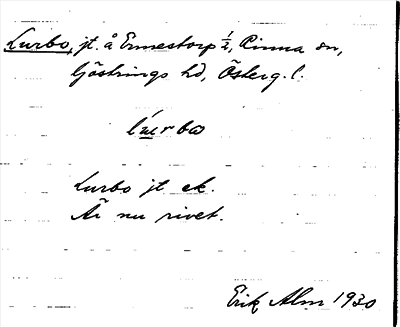 Lurbo, jt. å Ermestorp ½, Rinna sn,
Göstrings hd, Österg. l.
Lurbo jt ek.
Är nu rivet.
Erik Alm 1930